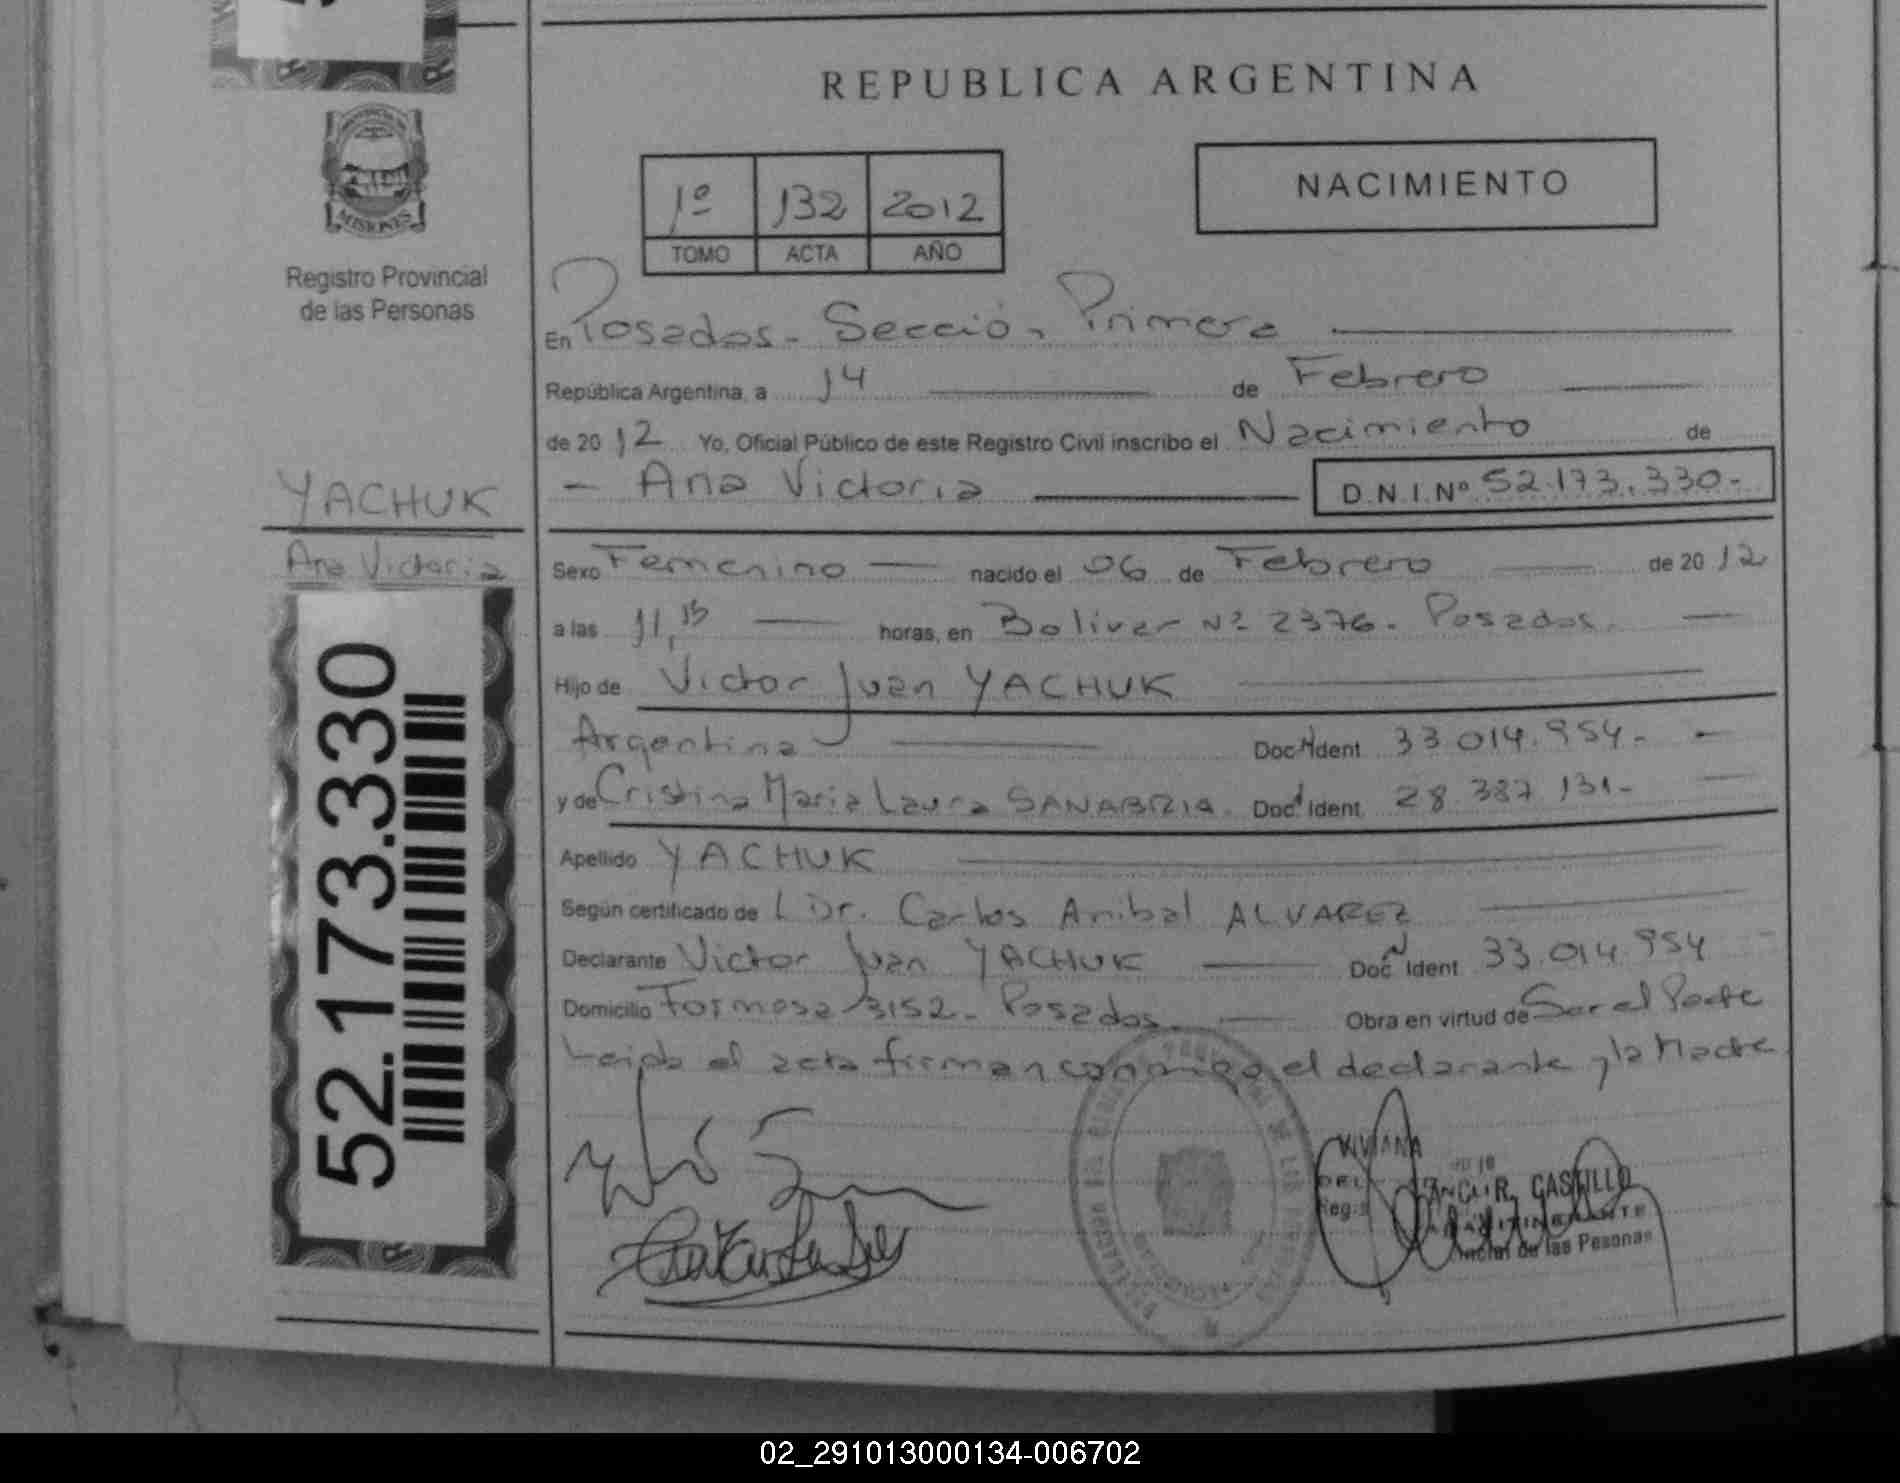 REPUBLICA ARGENTINA
MISIONES
Registro Provincial
de las Personas
1º 132 2012
TOMO ACTA AÑO
NACIMIENTO
En Posadas - Sección Primera
República Argentina, a 14 de Febrero
de 2012 Yo, Oficial Público de este Registro Civil inscribo el Nacimiento de
- Ana Victoria D.N.I.Nº 52.173.330-
YACHUK
Ana Victoria
Sexo Femenino nacido el 06 de Febrero de 2012
a las 11,15 horas, en Bolivar Nº 2376. Posadas.
Hijo de Victor Juan YACHUK
Argentina Doc N Ident 33.014.954.-
y de Cristina Maria Laura SANABRIA. Doc Ident. 28.387.131-
Apellido YACHUK
Según certificado de L Dr. Carlos Anibal ALVAREZ
Declarante Victor Juan YACHUK Doc N Ident 33.014.954
Domicilio Formosa 3152 - Posadas. Obra en virtud de Ser el Padre
Leida el acta firman conmigo el declarante y la Madre
52.173.330
VIVIANA
CASTILLO
de las Pesonas
02_291013000134-006702